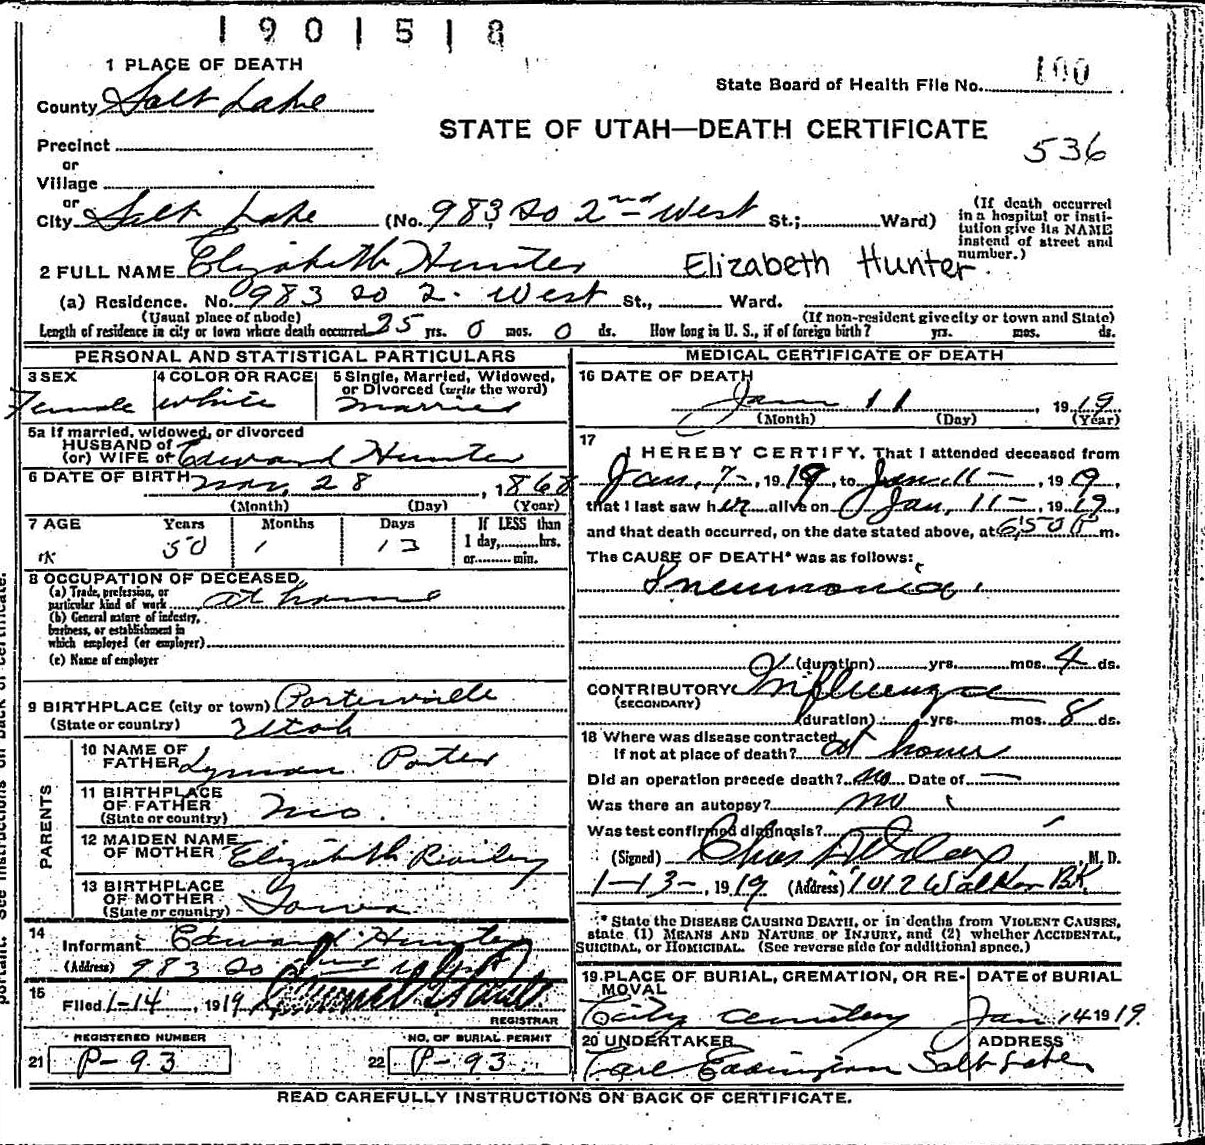 1901518
1 PLACE OF DEATH
State Board of Health File No. 100
County Salt Lake
STATE OF UTAH—DEATH CERTIFICATE
536
Precinct
or
Village
or
City Salt Lake (No. 983 So 2nd West St.; Ward)
(If death occurred in a hospital or institution give its NAME instead of street and number.)
2 FULL NAME Elizabeth Hunter Elizabeth Hunter
(a) Residence. No. 983 So 2. West St., Ward.
(Usual place of abode) (If non-resident give city or town and State)
Length of residence in city or town where death occurred 25 yrs. 0 mos. 0 ds. How long in U. S., if of foreign birth? yrs. mos. ds.
PERSONAL AND STATISTICAL PARTICULARS
3 SEX 4 COLOR OR RACE 5 Single, Married, Widowed, or Divorced (write the word)
Female White Married
5a If married, widowed, or divorced
HUSBAND of
(or) WIFE of Edward Hunter
6 DATE OF BIRTH Nov. 28, 1868
(Month) (Day) (Year)
7 AGE Years Months Days If LESS than
50 1 13 1 day,........hrs.
or.........min.
8 OCCUPATION OF DECEASED
(a) Trade, profession, or
particular kind of work at home
(b) General nature of industry,
business, or establishment in
which employed (or employer)
(c) Name of employer
9 BIRTHPLACE (city or town) Porterville
(State or country) Utah
PARENTS
10 NAME OF
FATHER Lyman Porter
11 BIRTHPLACE
OF FATHER Mo.
(State or country)
12 MAIDEN NAME
OF MOTHER Elizabeth
13 BIRTHPLACE
OF MOTHER Iowa
(State or country)
14
Informant Edward Hunter
(Address) 983 So
15
Filed 1-14, 1919
REGISTRAR
REGISTERED NUMBER NO. OF BURIAL PERMIT
21 P-93 22 P-93
MEDICAL CERTIFICATE OF DEATH
16 DATE OF DEATH
Jan 11, 1919
(Month) (Day) (Year)
17
I HEREBY CERTIFY, That I attended deceased from
Jan, 7-, 1919, to Jan. 11-, 1919,
that I last saw her alive on Jan, 11-, 1919,
and that death occurred, on the date stated above, at 6:50 P m.
The CAUSE OF DEATH* was as follows:
Pneumonia.
(duration) yrs. mos. 4 ds.
CONTRIBUTORY Influenza
(SECONDARY)
(duration) yrs. mos. 8 ds.
18 Where was disease contracted
If not at place of death? at home
Did an operation precede death? no Date of —
Was there an autopsy? no
Was test confirmed diagnosis?
(Signed) Chas, M. D.
1-13-, 1919 (Address) 1012 Walker Bk
* State the DISEASE CAUSING DEATH, or in deaths from VIOLENT CAUSES,
state (1) MEANS AND NATURE OF INJURY, and (2) whether ACCIDENTAL,
SUICIDAL, or HOMICIDAL. (See reverse side for additional space.)
19 PLACE OF BURIAL, CREMATION, OR RE- DATE of BURIAL
MOVAL
City Cemetery Jan 14 1919.
20 UNDERTAKER ADDRESS
Salt Lake
READ CAREFULLY INSTRUCTIONS ON BACK OF CERTIFICATE.